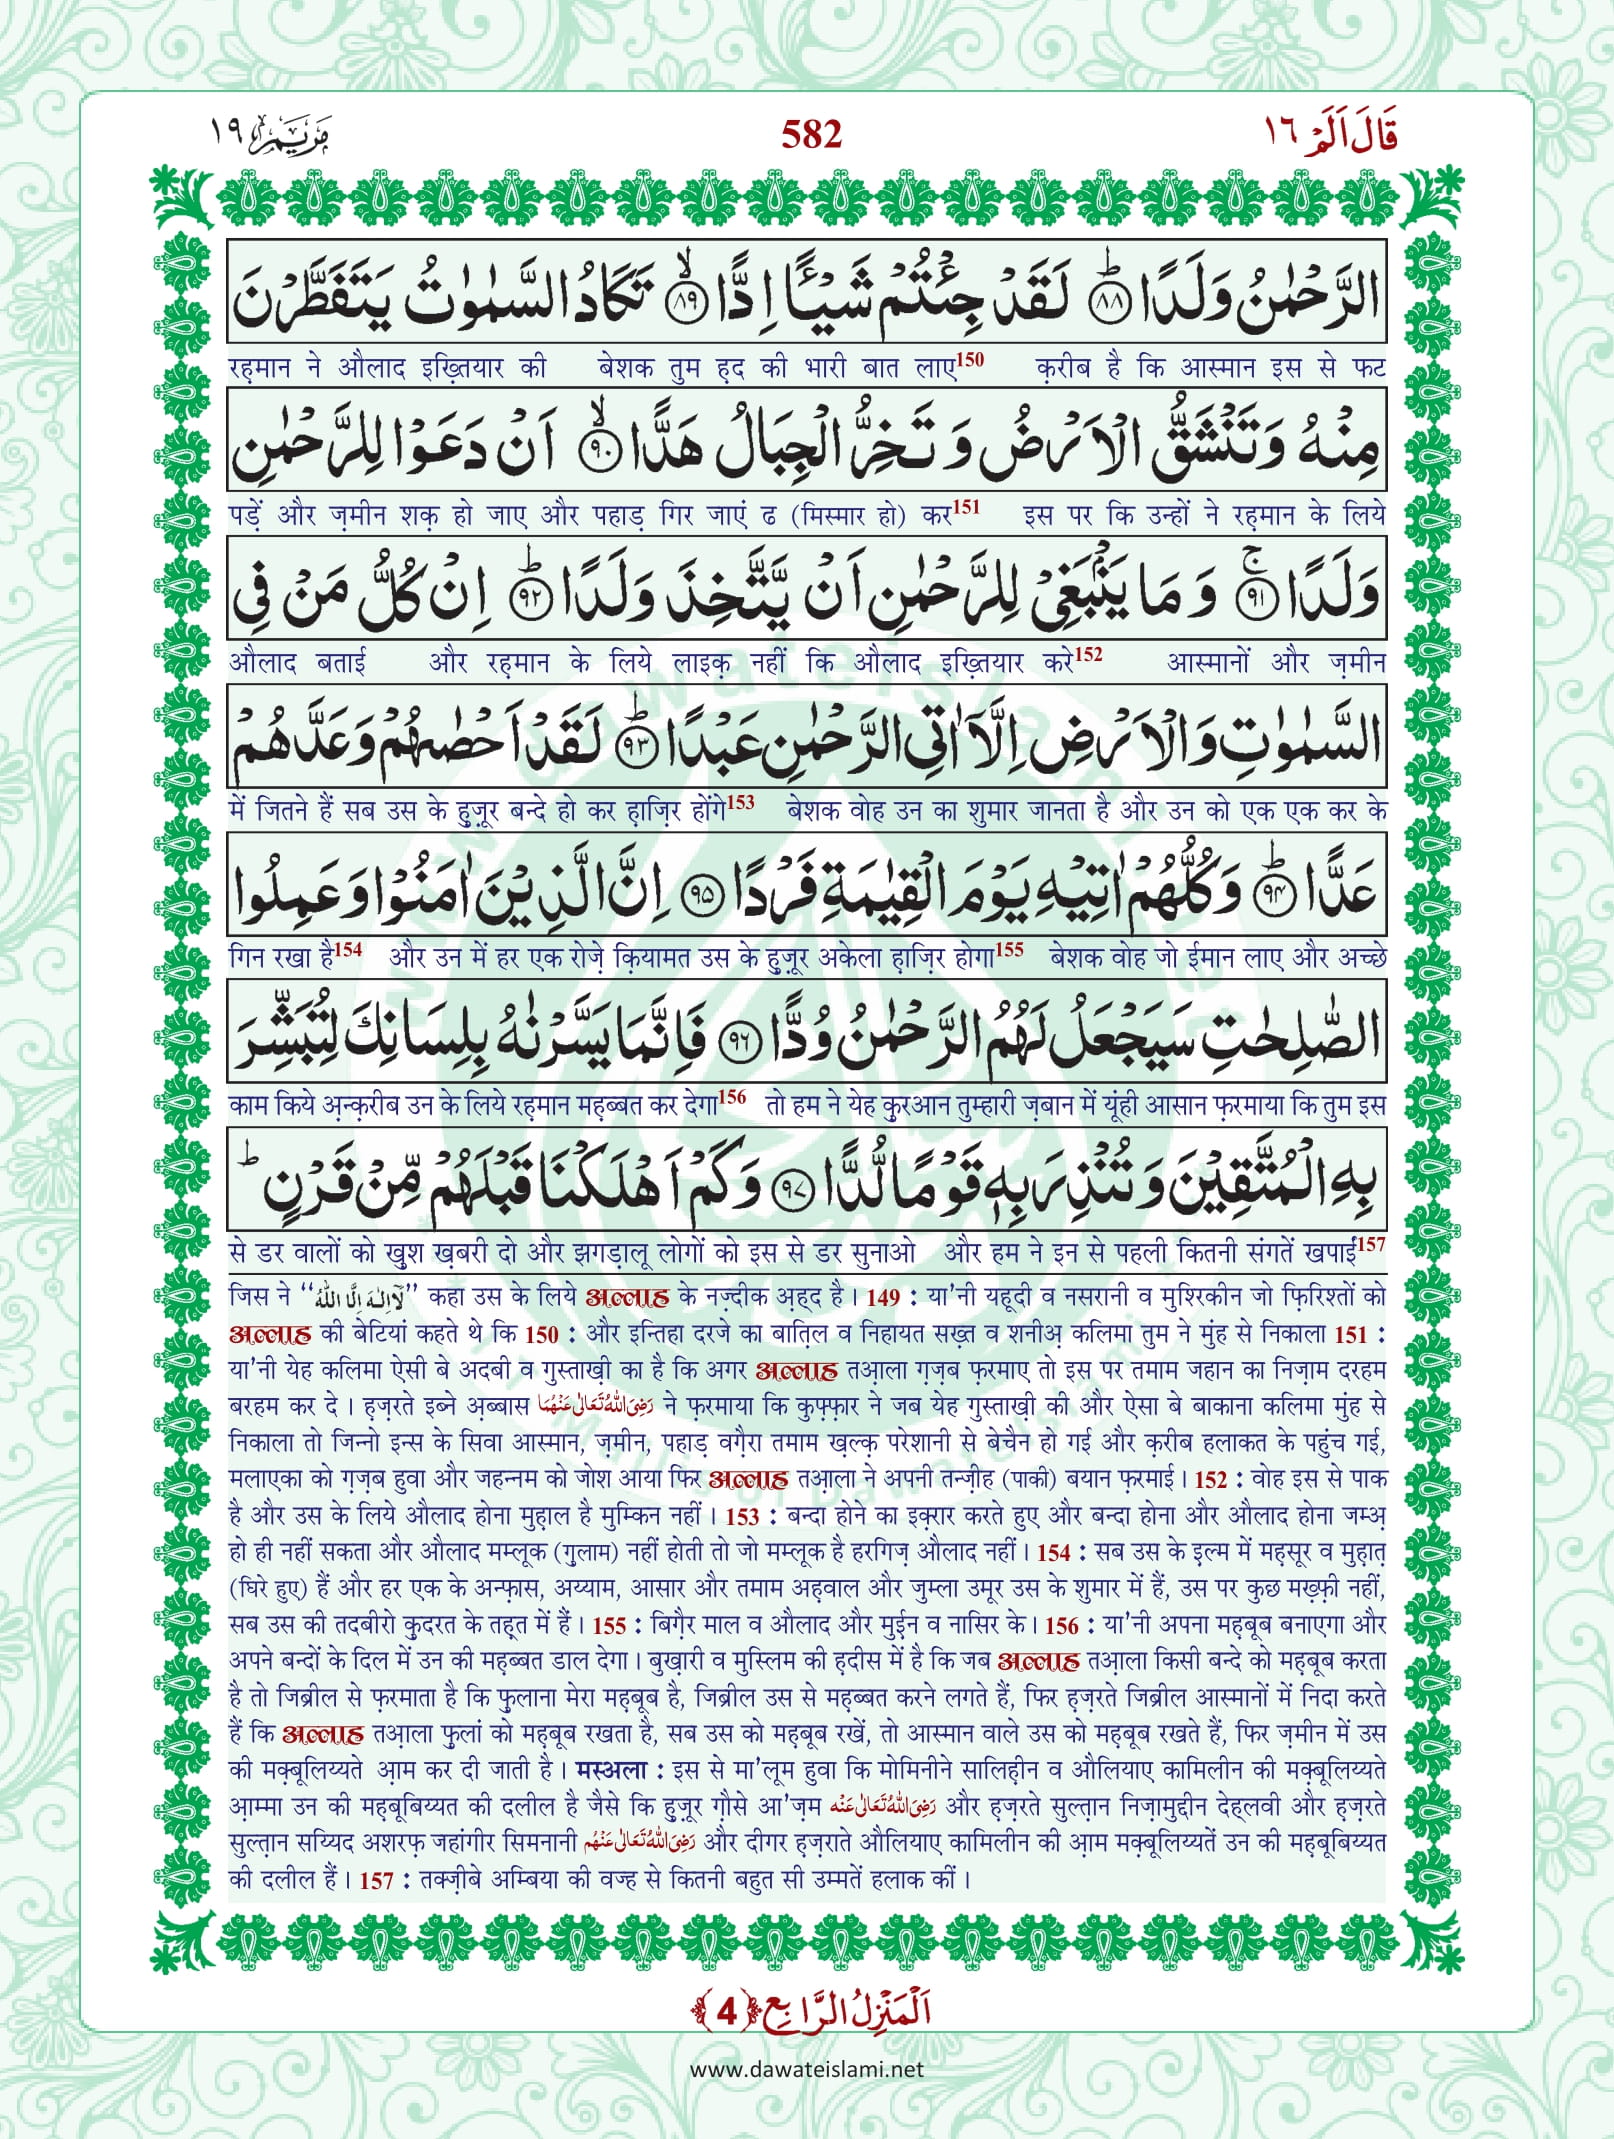 قَالَ اَلَمۡ ١٦ 582 مَرۡيَم ١٩
الرَّحْمٰنُ وَلَدًا ؕ﴿۸۸﴾ لَقَدْ جِئْتُمْ شَیْـًٔا اِدًّا ۙ﴿۸۹﴾ تَكَادُ السَّمٰوٰتُ یَتَفَطَّرْنَ
रह़मान ने औलाद इख़्तियार की बेशक तुम ह़द की भारी बात लाए150 क़रीब है कि आस्मान इस से फट
مِنْهُ وَ تَنْشَقُّ الْاَرْضُ وَ تَخِرُّ الْجِبَالُ هَدًّا ۙ﴿۹۰﴾ اَنْ دَعَوْا لِلرَّحْمٰنِ
पड़ें और ज़मीन शक़ हो जाए और पहाड़ गिर जाएं ढ (मिस्मार हो) कर151 इस पर कि उन्हों ने रह़मान के लिये
وَلَدًا ۚ﴿۹۱﴾ وَ مَا یَنْۢبَغِیْ لِلرَّحْمٰنِ اَنْ یَّتَّخِذَ وَلَدًا ؕ﴿۹۲﴾ اِنْ كُلُّ مَنْ فِی
औलाद बताई और रह़मान के लिये लाइक़ नहीं कि औलाद इख़्तियार करे152 आस्मानों और ज़मीन
السَّمٰوٰتِ وَ الْاَرْضِ اِلَّاۤ اٰتِی الرَّحْمٰنِ عَبْدًا ؕ﴿۹۳﴾ لَقَدْ اَحْصٰىهُمْ وَ عَدَّهُمْ
में जितने हैं सब उस के हुज़ूर बन्दे हो कर ह़ाज़िर होंगे153 बेशक वोह उन का शुमार जानता है और उन को एक एक कर के
عَدًّا ؕ﴿۹۴﴾ وَ كُلُّهُمْ اٰتِیْهِ یَوْمَ الْقِیٰمَةِ فَرْدًا ﴿۹۵﴾ اِنَّ الَّذِیْنَ اٰمَنُوْا وَ عَمِلُوا
गिन रखा है154 और उन में हर एक रोज़े क़ियामत उस के हुज़ूर अकेला ह़ाज़िर होगा155 बेशक वोह जो ईमान लाए और अच्छे
الصّٰلِحٰتِ سَیَجْعَلُ لَهُمُ الرَّحْمٰنُ وُدًّا ﴿۹۶﴾ فَاِنَّمَا یَسَّرْنٰهُ بِلِسَانِكَ لِتُبَشِّرَ
काम किये अ़न्क़रीब उन के लिये रह़मान मह़ब्बत कर देगा156 तो हम ने येह क़ुरआन तुम्हारी ज़बान में यूंही आसान फ़रमाया कि तुम इस
بِهِ الْمُتَّقِیْنَ وَ تُنْذِرَ بِهٖ قَوْمًا لُّدًّا ﴿۹۷﴾ وَ كَمْ اَهْلَكْنَا قَبْلَهُمْ مِّنْ قَرْنٍ ؕ
से डर वालों को खुश ख़बरी दो और झगड़ालू लोगों को इस से डर सुनाओ और हम ने इन से पहली कितनी संगतें खपाईं157
जिस ने ‘‘لَاۤاِلٰهَ اِلَّا اللّٰهُ’’ कहा उस के लिये अल्लाह के नज़्दीक अ़ह्द है। 149 : या’नी यहूदी व नसरानी व मुश्रिकीन जो फ़िरिश्तों को
अल्लाह की बेटियां कहते थे कि 150 : और इन्तिहा दरजे का बात़िल व निहायत सख़्त व शनीअ़ कलिमा तुम ने मुंह से निकाला 151 :
या’नी येह कलिमा ऐसी बे अदबी व गुस्ताख़ी का है कि अगर अल्लाह तआ़ला ग़ज़ब फ़रमाए तो इस पर तमाम जहान का निज़ाम दरहम
बरहम कर दे। ह़ज़रते इब्ने अ़ब्बास رَضِیَ اللّٰهُ تَعَالٰی عَنْهُمَا ने फ़रमाया कि कुफ़्फ़ार ने जब येह गुस्ताख़ी की और ऐसा बे बाकाना कलिमा मुंह से
निकाला तो जिन्नो इन्स के सिवा आस्मान, ज़मीन, पहाड़ वग़ैरा तमाम ख़ल्क़ परेशानी से बेचैन हो गई और क़रीब हलाकत के पहुंच गई,
मलाएका को ग़ज़ब हुवा और जहन्नम को जोश आया फिर अल्लाह तआ़ला ने अपनी तन्ज़ीह (पाकी) बयान फ़रमाई। 152 : वोह इस से पाक
है और उस के लिये औलाद होना मुह़ाल है मुम्किन नहीं। 153 : बन्दा होने का इक़्रार करते हुए और बन्दा होना और औलाद होना जम्अ़
हो ही नहीं सकता और औलाद मम्लूक (गुलाम) नहीं होती तो जो मम्लूक है हरगिज़ औलाद नहीं। 154 : सब उस के इल्म में मह़सूर व मुह़ात़
(घिरे हुए) हैं और हर एक के अन्फ़ास, अय्याम, आसार और तमाम अह़वाल और जुम्ला उमूर उस के शुमार में हैं, उस पर कुछ मख़्फ़ी नहीं,
सब उस की तदबीरो क़ुदरत के तह़्त में हैं। 155 : बिग़ैर माल व औलाद और मुईन व नासिर के। 156 : या’नी अपना महबूब बनाएगा और
अपने बन्दों के दिल में उन की मह़ब्बत डाल देगा। बुख़ारी व मुस्लिम की ह़दीस में है कि जब अल्लाह तआ़ला किसी बन्दे को मह़बूब करता
है तो जिब्रील से फ़रमाता है कि फ़ुलाना मेरा मह़बूब है, जिब्रील उस से मह़ब्बत करने लगते हैं, फिर ह़ज़रते जिब्रील आस्मानों में निदा करते
हैं कि अल्लाह तआ़ला फ़ुलां को मह़बूब रखता है, सब उस को मह़बूब रखें, तो आस्मान वाले उस को मह़बूब रखते हैं, फिर ज़मीन में उस
की मक़्बूलिय्यते आ़म कर दी जाती है। मस्अला : इस से मा’लूम हुवा कि मोमिनीने सालिह़ीन व औलियाए कामिलीन की मक़्बूलिय्यते
आ़म्मा उन की मह़बूबिय्यत की दलील है जैसे कि हुज़ूर ग़ौसे आ’ज़म رَضِیَ اللّٰهُ تَعَالٰی عَنْه और ह़ज़रते सुल्त़ान निज़ामुद्दीन देह्लवी और ह़ज़रते
सुल्त़ान सय्यिद अशरफ़ जहांगीर सिमनानी رَضِیَ اللّٰهُ تَعَالٰی عَنْهُم और दीगर ह़ज़राते औलियाए कामिलीन की आ़म मक़्बूलिय्यतें उन की मह़बूबिय्यत
की दलील हैं। 157 : तक्ज़ीबे अम्बिया की वज्ह से कितनी बहुत सी उम्मतें हलाक कीं।
اَلْمَنْزِلُ الرَّابِع ﴿4﴾
www.dawateislami.net